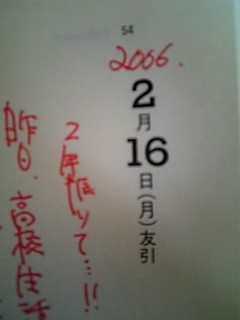 54
2006.
2月16日(月)友引
2年振りで…!!
昨日、高校生活